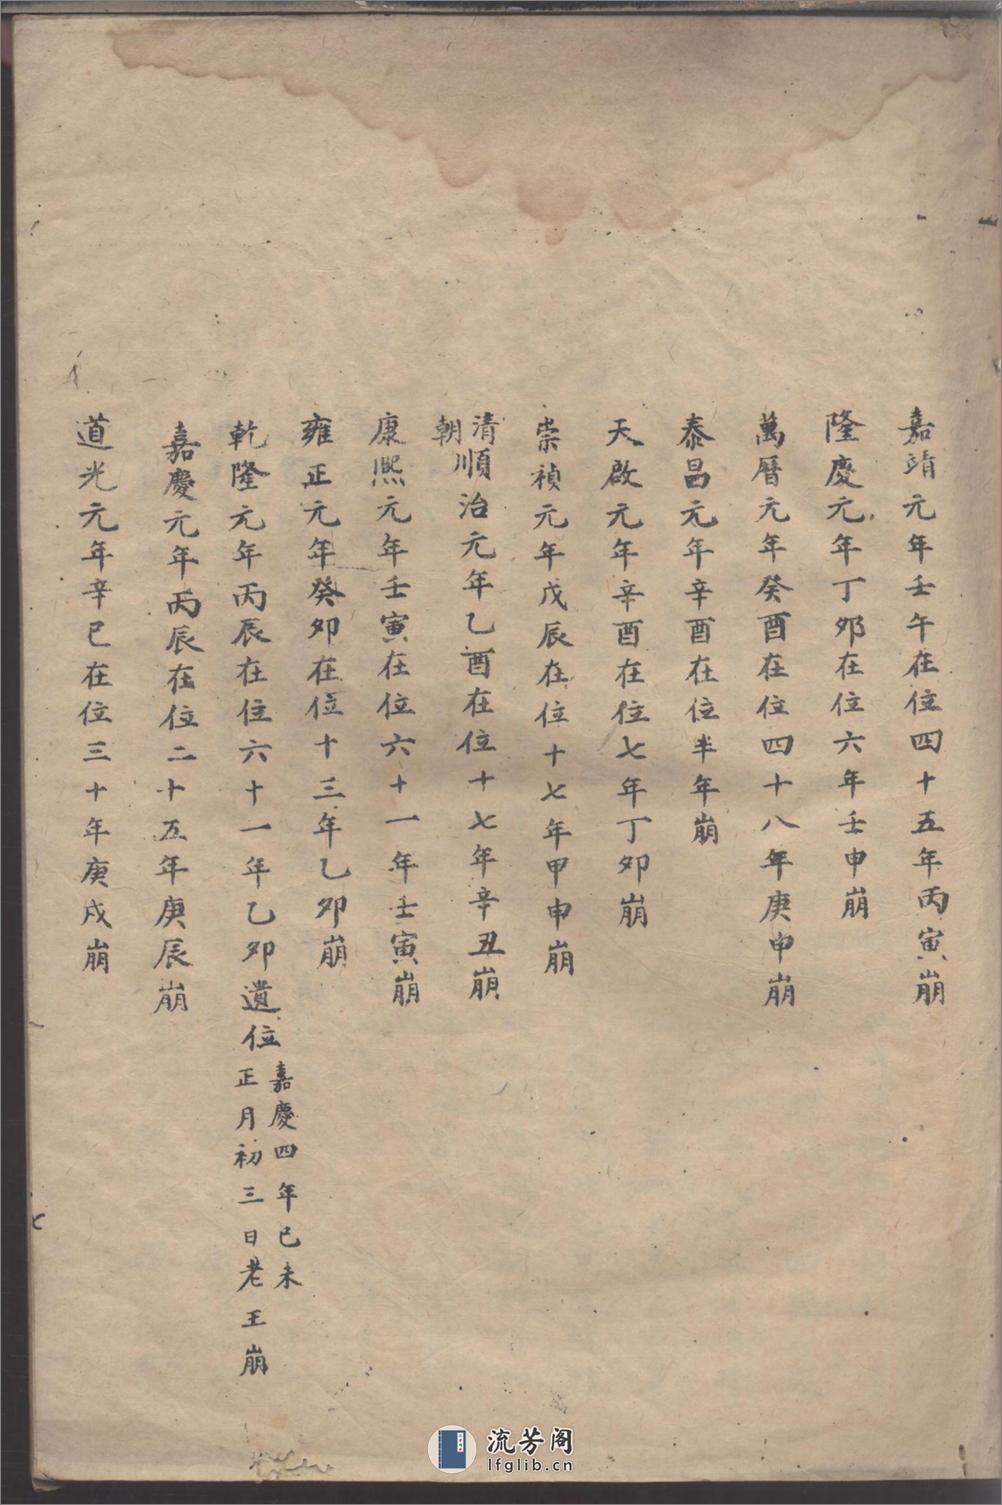 嘉靖元年壬午在位四十五年丙寅崩
隆慶元年丁夘在位六年壬申崩
萬曆元年癸酉在位四十八年庚申崩
泰昌元年辛酉在位半年崩
天啟元年辛酉在位七年丁夘崩
崇禎元年戊辰在位十七年甲申崩
清朝順治元年乙酉在位十七年辛丑崩
康熙元年壬寅在位六十一年壬寅崩
雍正元年癸夘在位十三年乙夘崩
乾隆元年丙辰在位六十一年乙夘遺位
嘉慶四年已未
正月初三日老王崩
嘉慶元年丙辰在位二十五年庚辰崩
道光元年辛巳在位三十年庚戌崩
流芳阁
lfglib.cn